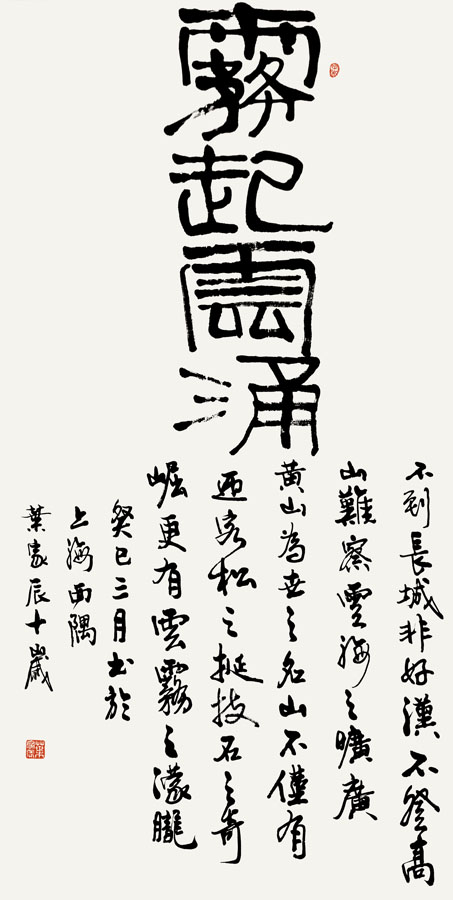 霧起雲涌
不到長城非好漢不登高
山難察雲海之曠廣
黃山為世之名山不僅有
迎客松之挺拔石之奇
崛更有雲霧之濛朧
癸巳三月书於
上海西隅
葉家辰十歲